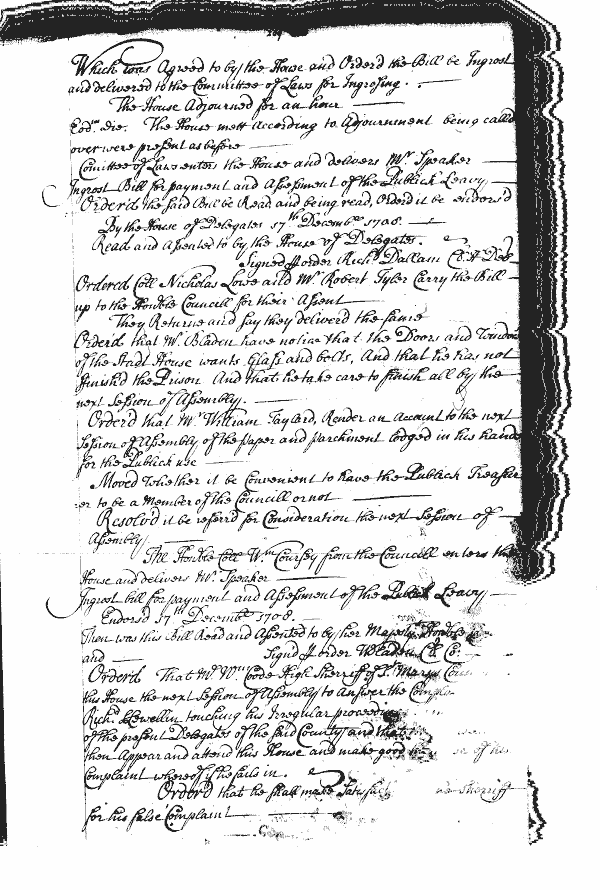 Which was Agreed to by the House and Orderd the Bill be Ingrost
and delivered to the Committee of Laws for Ingrosing.
The House Adjourned for an hour
Eod.m die. The House mett According to Adjournment being calld
over were present as before
Comittee of Laws enters the House and delivers Mr. Speaker
Ingrost Bill for payment and Assessment of the Publick Leavy
Orderd the said Bill be Read and being read, Orderd it be endors'd
By the House of Delegates 17th Decembr. 1708.
Read and Assented to by the House of Delegates.
Signed p order Richd Dallam Cl. H. Del
Ordered Coll Nicholas Lowe and Mr. Robert Tyler Carry the Bill
up to the Honble Councill for their Assent
They Returne and say they deliverd the same
Orderd that Mr. Bladen have notice that the Doors and Windows
of the Stadt House wants Glass and bolts, And that he has not
finish'd the Prison And that he take care to finish all by the
next Session of Assembly.
Orderd that Mr. William Taylard, Render an Account to the next
Session of Assembly of the paper and parchment lodged in his hands
for the Publick use
Moved Whether it be Convenient to have the Publick Treasur
er to be a Member of the Councill or not
Resolv'd it be referrd for Consideration the next Session of
Assembly
The Honble Coll Wm. Coursey from the Councill enters the
House and delivers Mr. Speaker
Ingrost bill for payment and Assessment of the Publick Leavy
Endorsd 17th Decembr 1708.
Then was this Bill Read and Assented to by her Majestys Honble
and Signd p order W Bladen Cl. Co.
Orderd That Mr. Wm. Coode High Sherriff of St. Marys
this House the next Session of Assembly to Answer the
Richd. Llewellin touching his Irregular
of the present Delegates of the said County and that
then Appear and attend this House and make good of his
Complaint whereof if he fails in.
Orderd that he shall make Sherriff
for his false Complaint